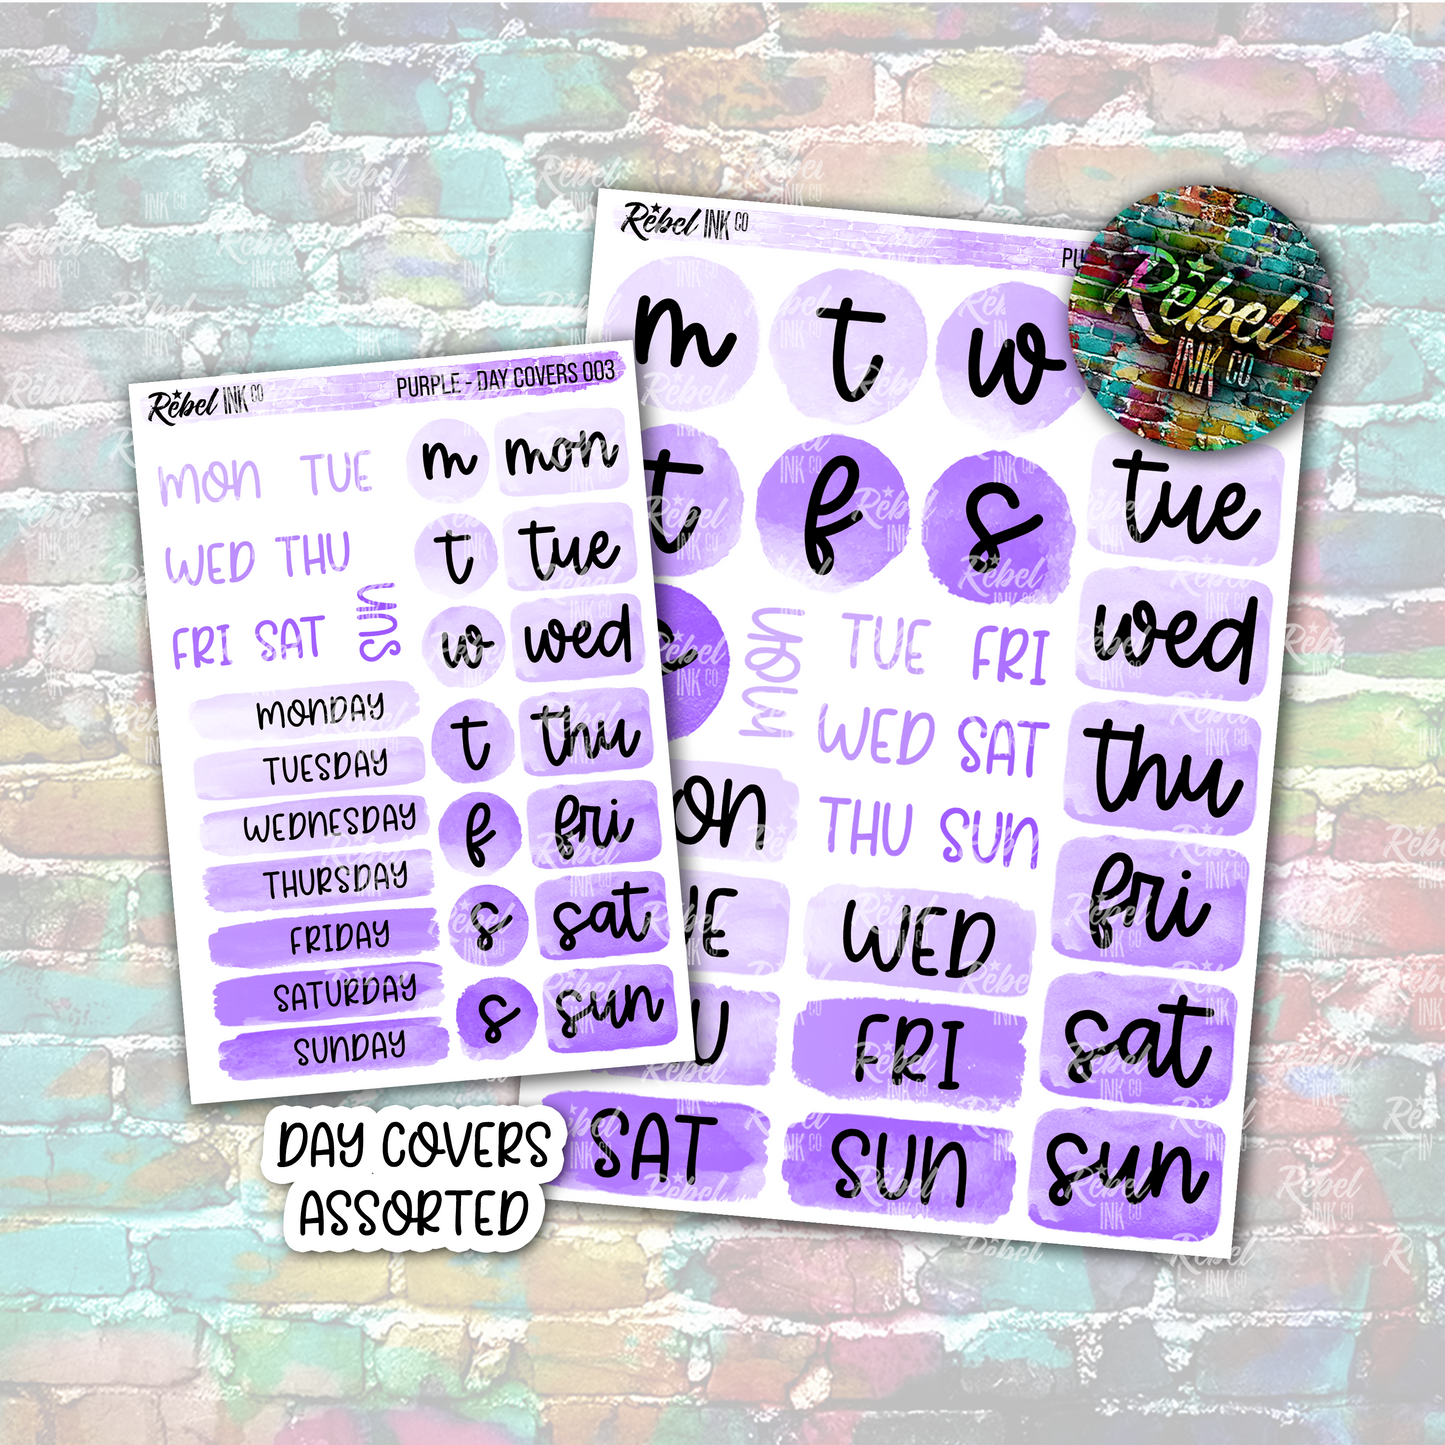 Rebel INK CO
PURPLE - DAY COVERS 003
mon TUE
WED THU
FRI SAT
sun
MONDAY
TUESDAY
WEDNESDAY
THURSDAY
FRIDAY
SATURDAY
SUNDAY
m mon
t tue
w wed
t thu
f fri
s sat
s sun
DAY COVERS
ASSORTED
Rebel INK CO
PU
m t w
t f s
mon
TUE FRI
WED SAT
THU SUN
on
UE
WED
U
FRI
SAT
SUN
tue
wed
thu
fri
sat
sun
Rebel
INK CO